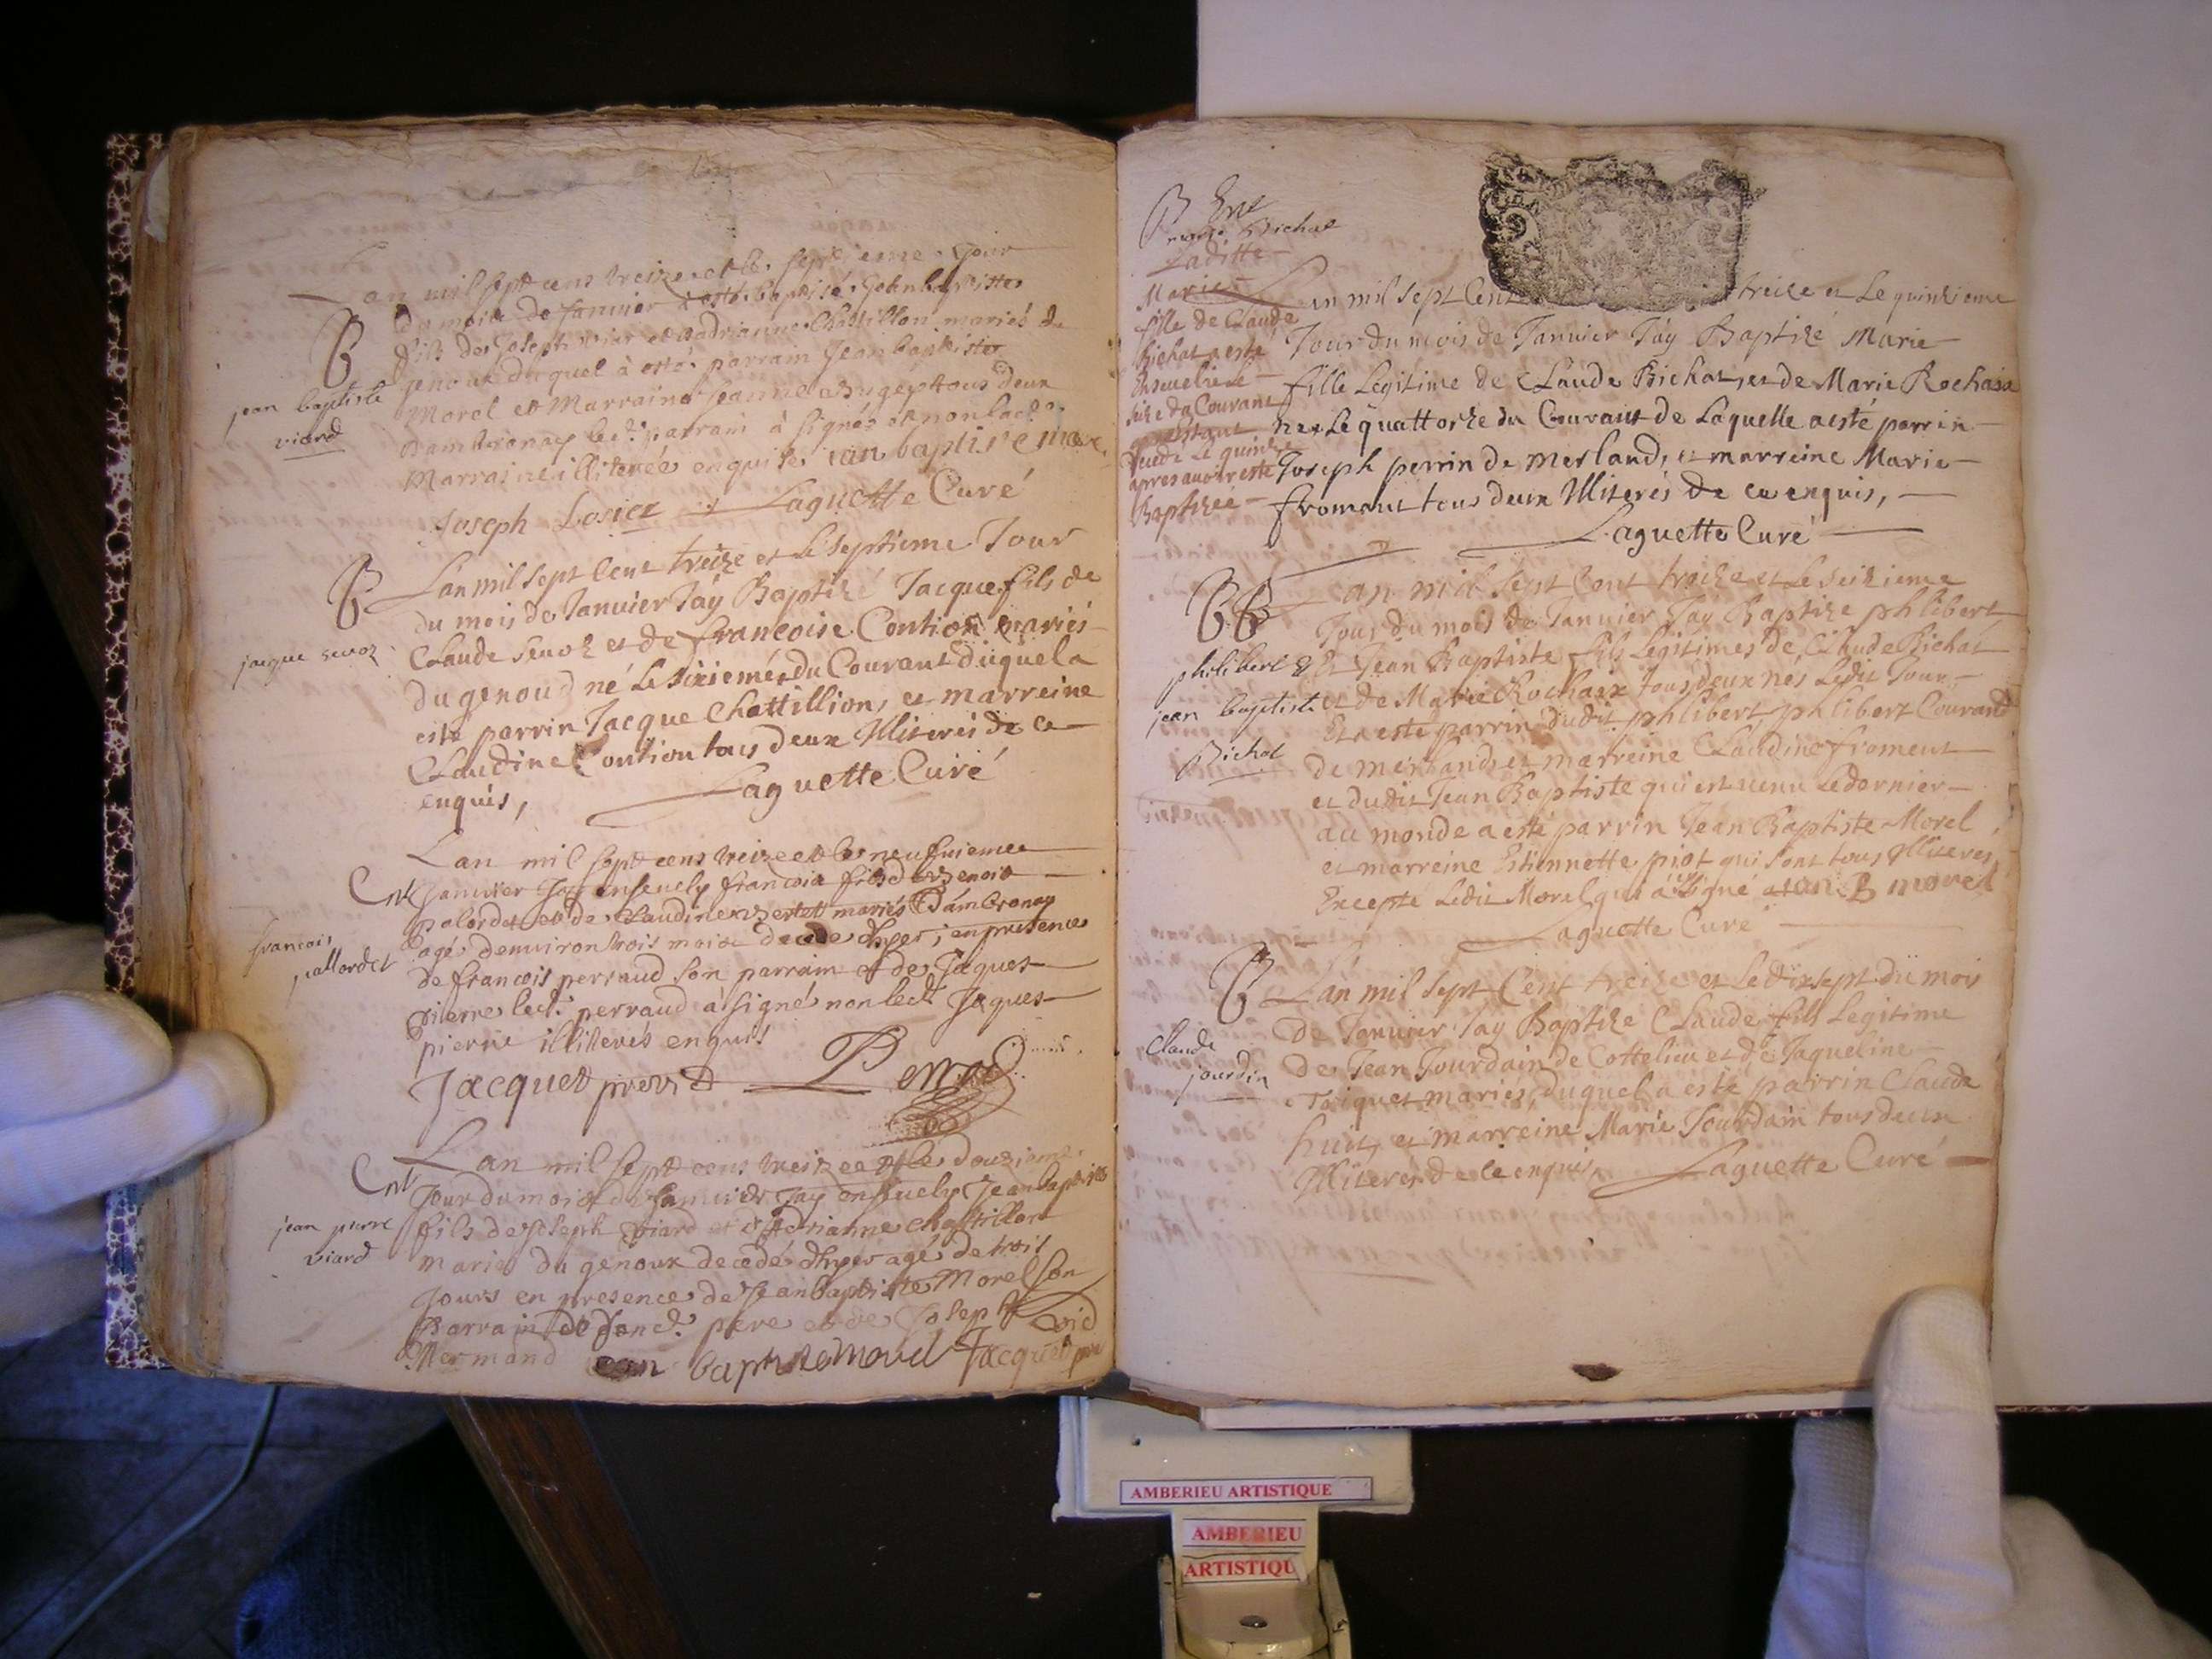 Lan mil sept cens treize et le septieme jour
B
du mois de Janvier à esté baptisé Jean baptiste
fils de Joseph viar et dadrianne Chastillon mariés du
genoux duquel à esté parrain Jean baptiste
jean baptiste
viard
Morel et Marraine Jeanne tous deux
Dambronay led. parrain à signé et non lad.
Marraine illiterée enquise
Joseph Laguette Curé
B
Lan mil sept Cent treize et Le septieme Jour
du mois de Janvier Jáy Baptizé Jacque fils de
jacque sevoz
Claude sevoz et de francoise Contion mariés
du genoud né Le sixieme du Courant duquel a
esté parrin Jacque Chattillion, et marreine
Claudine Contion tous deux Illiterés de ce
enquis, Laguette Curé
Lan mil sept cens treize et le neufuieme
Ent
Janvier Jay enseuely francois fils de benoit
palordet et de Claudine mariés Dámbronay
francois
pallordet
agé denviron trois mois decedé dhyer, en presence
de francois perraud son parrain et de Jaques
pierre led. perraud à signé non led. Jaques
pierre illiterés enquis
Jacquet
Lan mil sept cens treize et le douzieme
Ent
Jour du mois de Janvier Jay enseuely Jean baptiste
jean pierre
viard
fils de Joseph viard et dAdrianne chastillon
mariés du genoux decedé dhyer agé de trois
Jours en presence de Jean baptiste Morel son
Parrain pere et de Joseph
Mermand Jacquet
B Ent
Bichat
Laditte
Marie
fille de Claude
Bichat a esté
Enseuelie le
seize du Courant
apres avoir esté
Baptizée
Lan mil sept Cent treize et Le quinzieme
Jour du mois de Janvier Jáy Baptizé Marie
fille Legitime de Claude Bichat, et de Marie Rochaix
née Le quattorze du Courant de Laquelle a esté parrin
Joseph perrin de merland, et marreine Marie
fromant tous deux Illiterés de ce enquis,
Laguette Curé
BB
Lan mil sept Cent treize et Le seizieme
Jour du mois de Janvier Jáy Baptize phlibert
philibert &
jean baptiste
Bichat
Et Jean Baptiste fils Legitimes de Claude Bichat
et de Marie Rochaix tous deux nés Ledit Jour
Et a esté parrin dudit phlibert, phlibert Courand
de merland, et marreine Claudine froment
et dudit Jean Baptiste qui est venu Le dernier
au monde a esté parrin Jean Baptiste Morel
et marreine Estiennette piot qui sont tous Illiteres,
Excepté Ledit Morel qui a signé Jean B morel
Laguette Curé
B
Lán mil sept Cent treize et Le dixsept du mois
de Janvier Jáy Baptize Claude fils Legitime
Claude
jourdin
de Jean Jourdain de Cottelieu et de Jaqueline
mariés, duquel a esté parrin Claude
huit, et marreine Marie Jourdain tous deux
Illiterés de Ce enquis, Laguette Curé
AMBERIEU ARTISTIQUE
AMBERIEU
ARTISTIQU